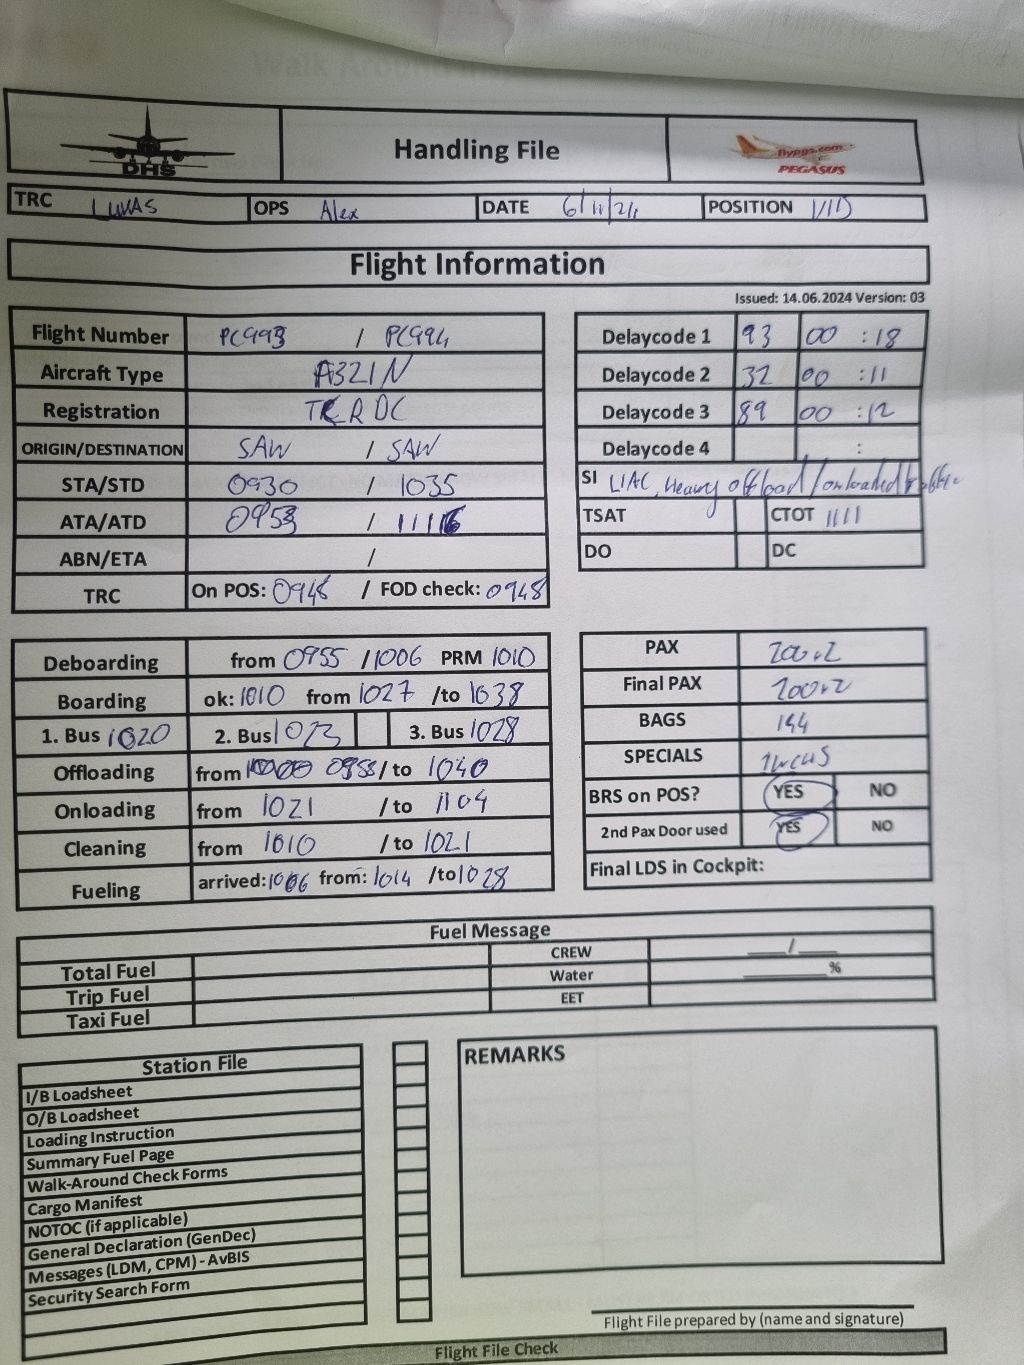 DHS Handling File flypgs.com PEGASUS
TRC LUKAS OPS Alex DATE 6/11/24 POSITION
Flight Information
Issued: 14.06.2024 Version: 03
Flight Number PC993 / PC994
Aircraft Type A321N
Registration TCRDC
ORIGIN/DESTINATION SAW / SAW
STA/STD 0930 / 1035
ATA/ATD 0953 / 1116
ABN/ETA /
TRC On POS: 0948 / FOD check: 0948
Delaycode 1 93 00 :18
Delaycode 2 32 00 :11
Delaycode 3 89 00 :12
Delaycode 4 :
SI LIAC, Heavy offload/onload
TSAT CTOT 1111
DO DC
Deboarding from 0955 /1006 PRM 1010
Boarding ok: 1010 from 1027 /to 1038
1. Bus 1020 2. Bus 1023 3. Bus 1028
Offloading from 0955 / to 1040
Onloading from 1021 / to 1104
Cleaning from 1010 / to 1021
Fueling arrived: 1006 from: 1014 /to 1028
PAX 200+2
Final PAX 200+2
BAGS 144
SPECIALS
BRS on POS? YES NO
2nd Pax Door used YES NO
Final LDS in Cockpit:
Fuel Message
Total Fuel CREW ____/____
Trip Fuel Water ________%
Taxi Fuel EET
Station File
I/B Loadsheet
O/B Loadsheet
Loading Instruction
Summary Fuel Page
Walk-Around Check Forms
Cargo Manifest
NOTOC (if applicable)
General Declaration (GenDec)
Messages (LDM, CPM) - AvBIS
Security Search Form
REMARKS
Flight File prepared by (name and signature)
Flight File Check